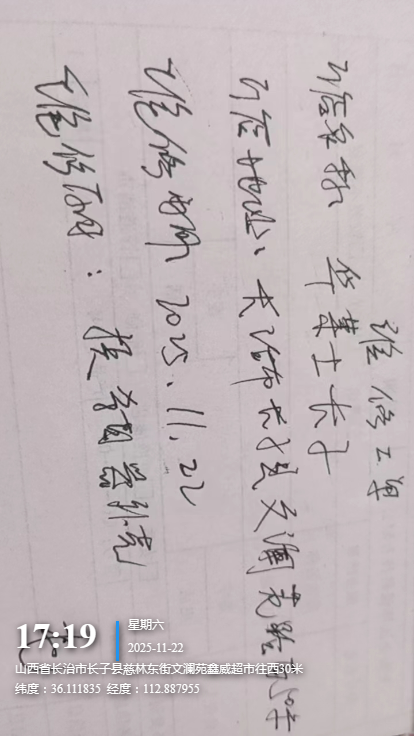 维修工单
门店名称 华莱士长子
门店地址：长治市长子县文澜苑
维修时间 2025.11.22
维修项目：换 器外壳
17:19
星期六
2025-11-22
山西省长治市长子县慈林东街文澜苑鑫威超市往西30米
纬度：36.111835 经度：112.887955